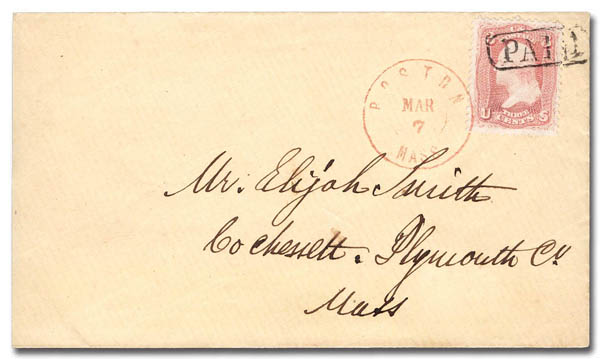 PAID
BOSTON
MAR
7
MASS
U THREE CENTS S
Mr. Elijah Smith
Cochessett. Plymouth Co
Mass